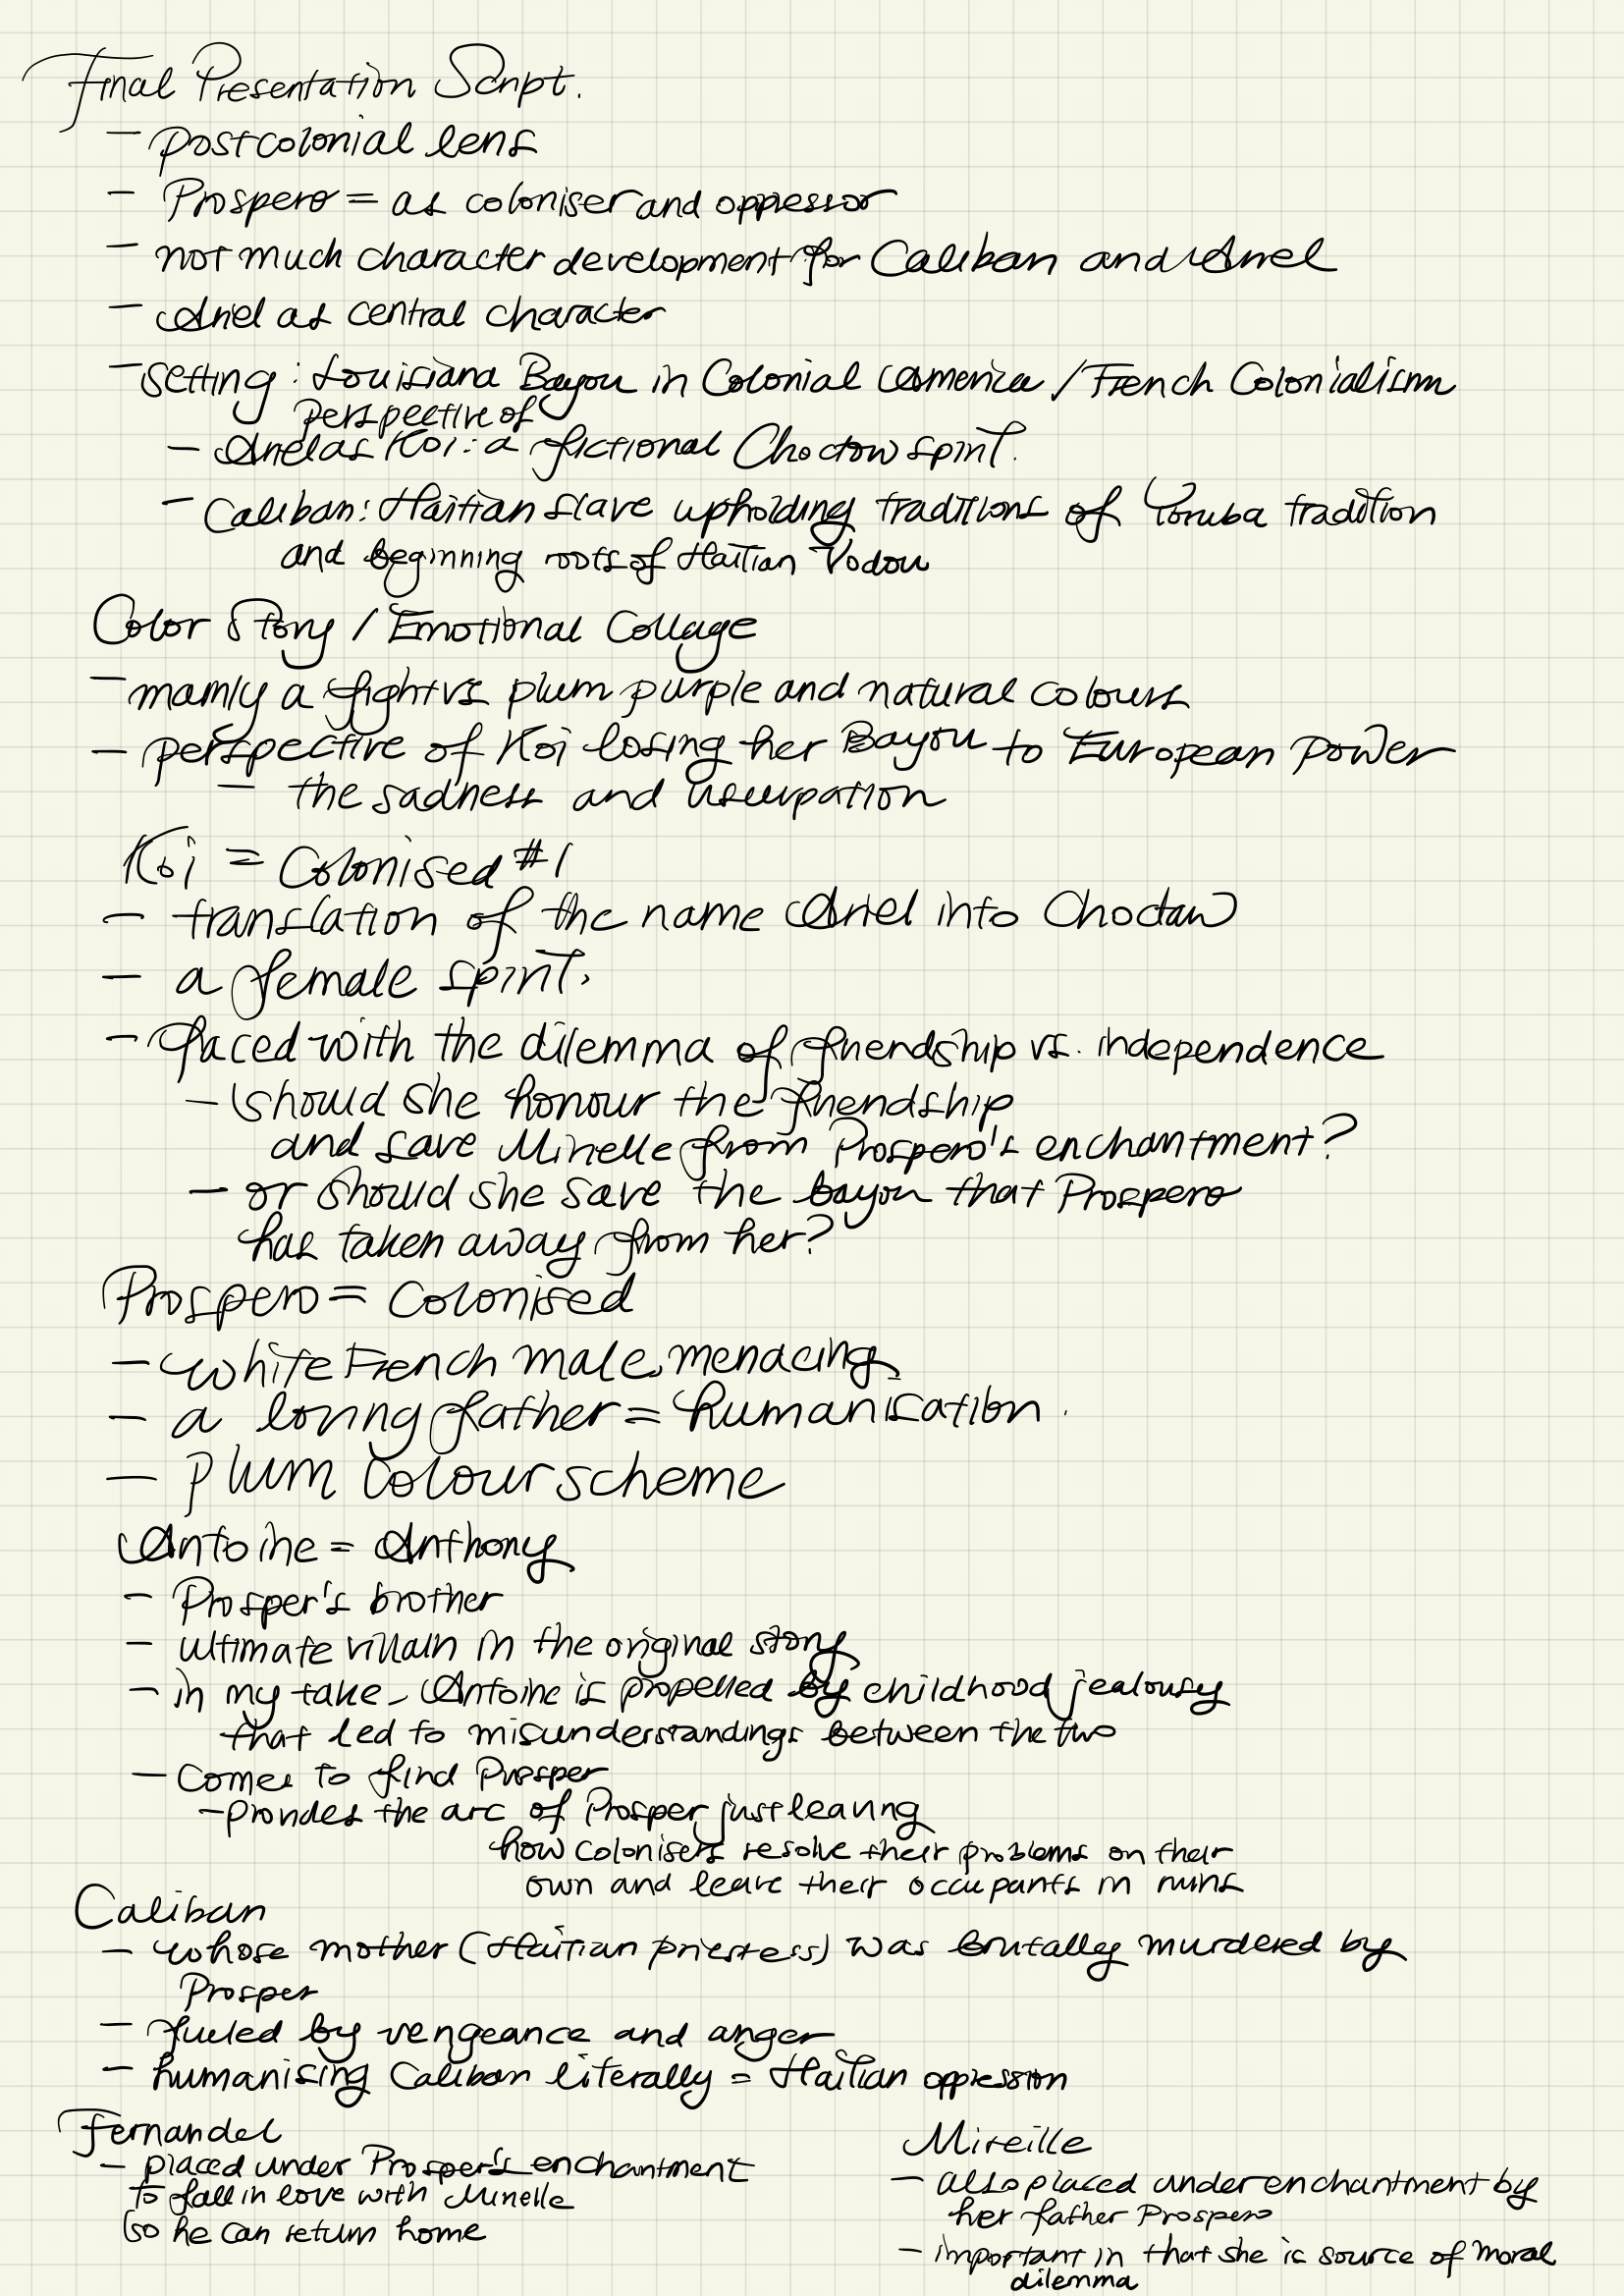 Final Presentation Script.
- postcolonial lens
- Prospero = as coloniser and oppressor
- not much character development for Caliban and Ariel
- Ariel as central character
- setting: Louisiana Bayou in Colonial America / French Colonialism
perspective of
- Ariel as Koi: a fictional Choctow spirit.
- Caliban: Haitian slave upholding traditions of Yoruba tradition
and beginning roots of Haitian Vodou
Color Story / Emotional Collage
- mainly a fight vs plum purple and natural colours
- perspective of Koi losing her Bayou to European Power
- the sadness and usurpation
Koi = Colonised #1
- translation of the name Ariel into Choctaw
- a female spirit.
- faced with the dilemma of friendship vs. independence
- should she honour the friendship
and save Mireille from Prospero's enchantment?
- or should she save the bayou that Prospero
has taken away from her?
Prospero = Colonised
- white French male, menacing
- a loving father = humanisation.
- plum colour scheme
Antoine = Anthony
- Prosper's brother
- ultimate villain in the original story
- in my take - Antoine is propelled by childhood jealousy
that led to misunderstandings between the two
- Comes to find Prosper
- provides the arc of Prosper just leaving
how colonisers resolve their problems on their
own and leave their occupants in ruins
Caliban
- whose mother (Haitian priestess) was brutally murdered by
Prosper
- fueled by vengeance and anger
- humanising Caliban literally = Haitian oppression
Fernandel
- placed under Prosper's enchantment
to fall in love with Mireille
so he can return home
Mireille
- also placed under enchantment by
her father Prospero
- important in that she is source of moral
dilemma